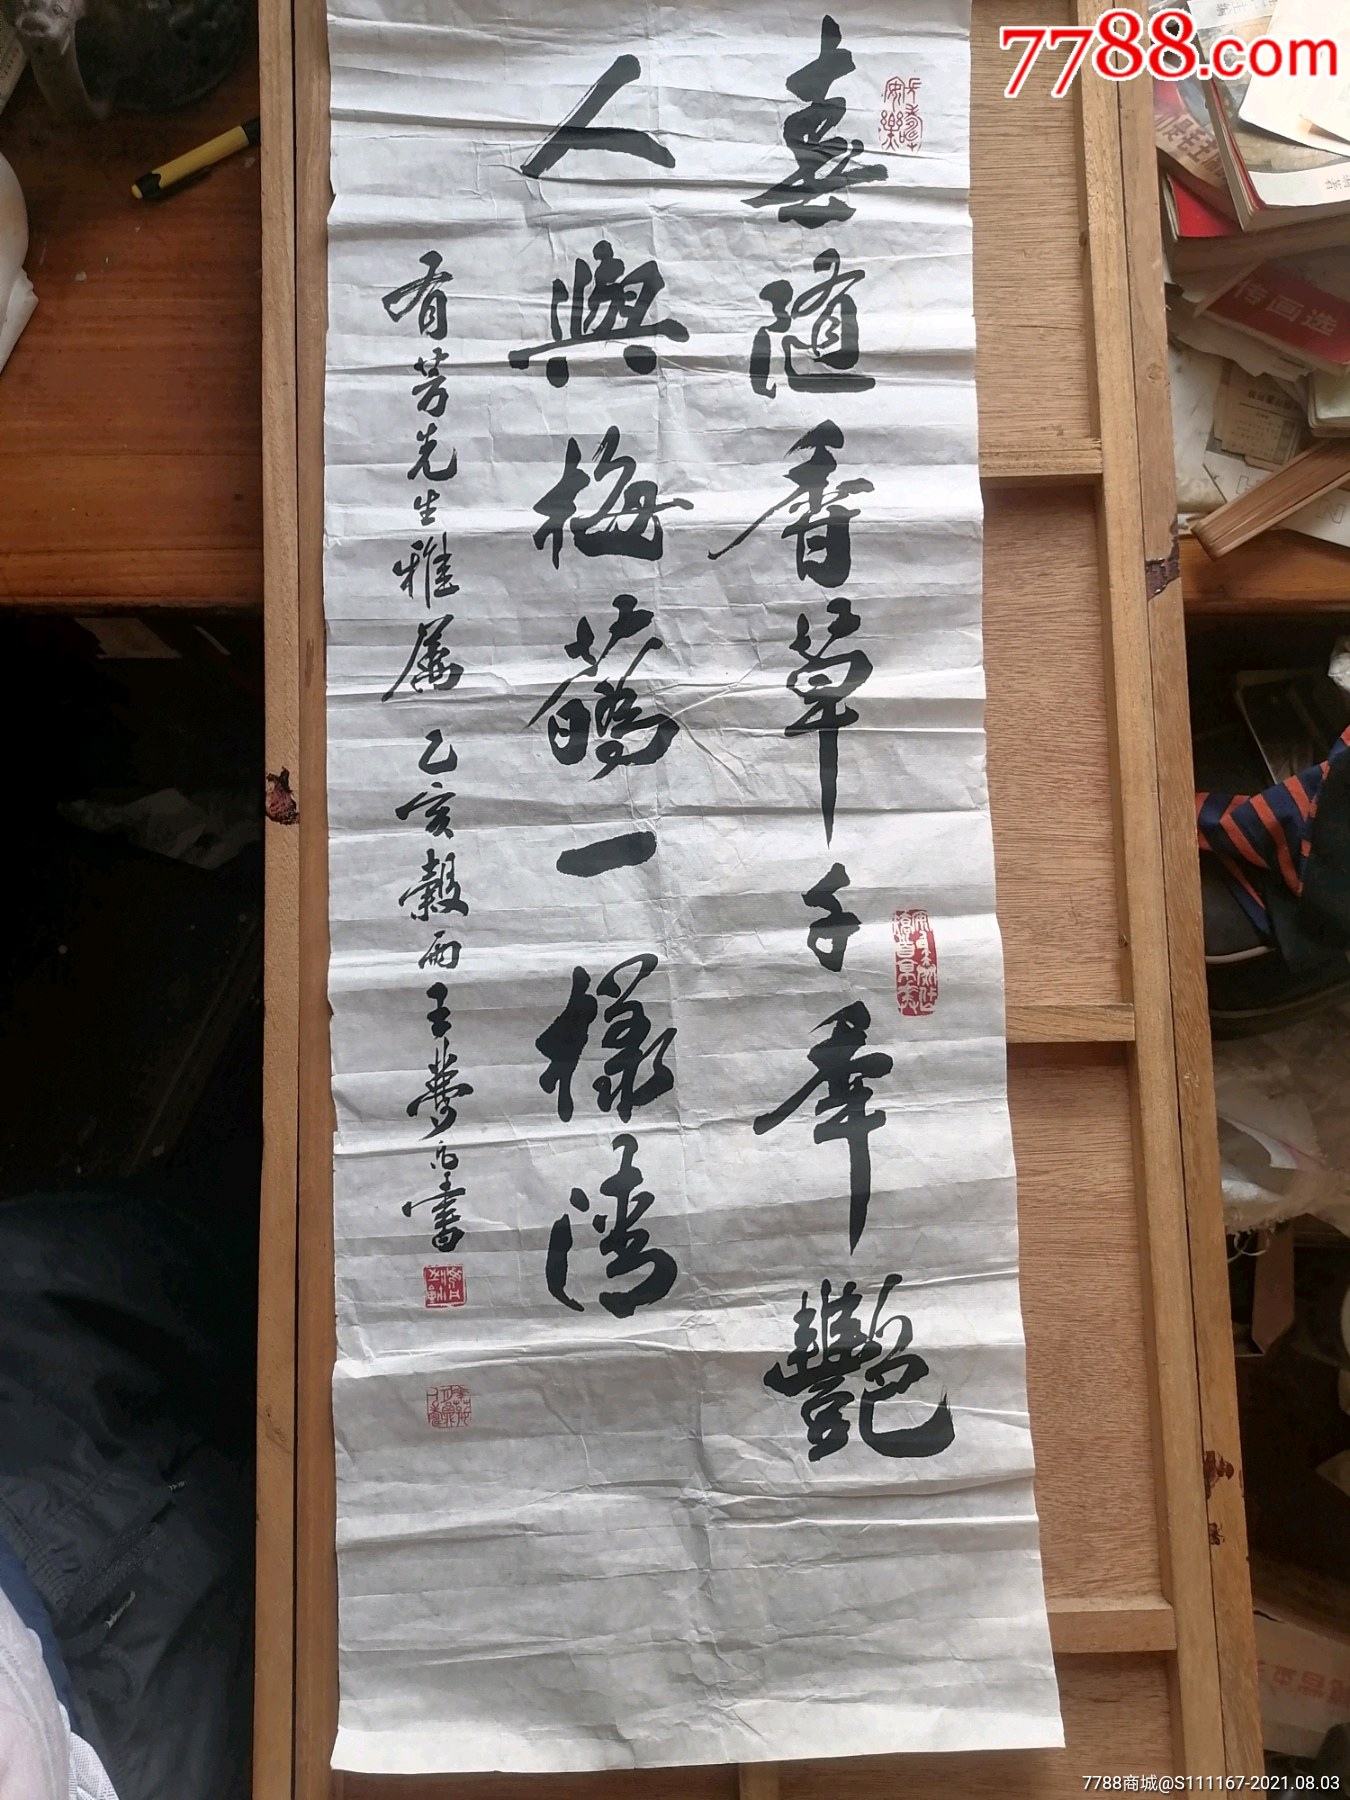 7788.com
春隨香草千年艷
人與梅蘤一樣清
有芳先生雅屬 乙亥榖雨王夢書
传画选
7788商城@S111167-2021.08.03